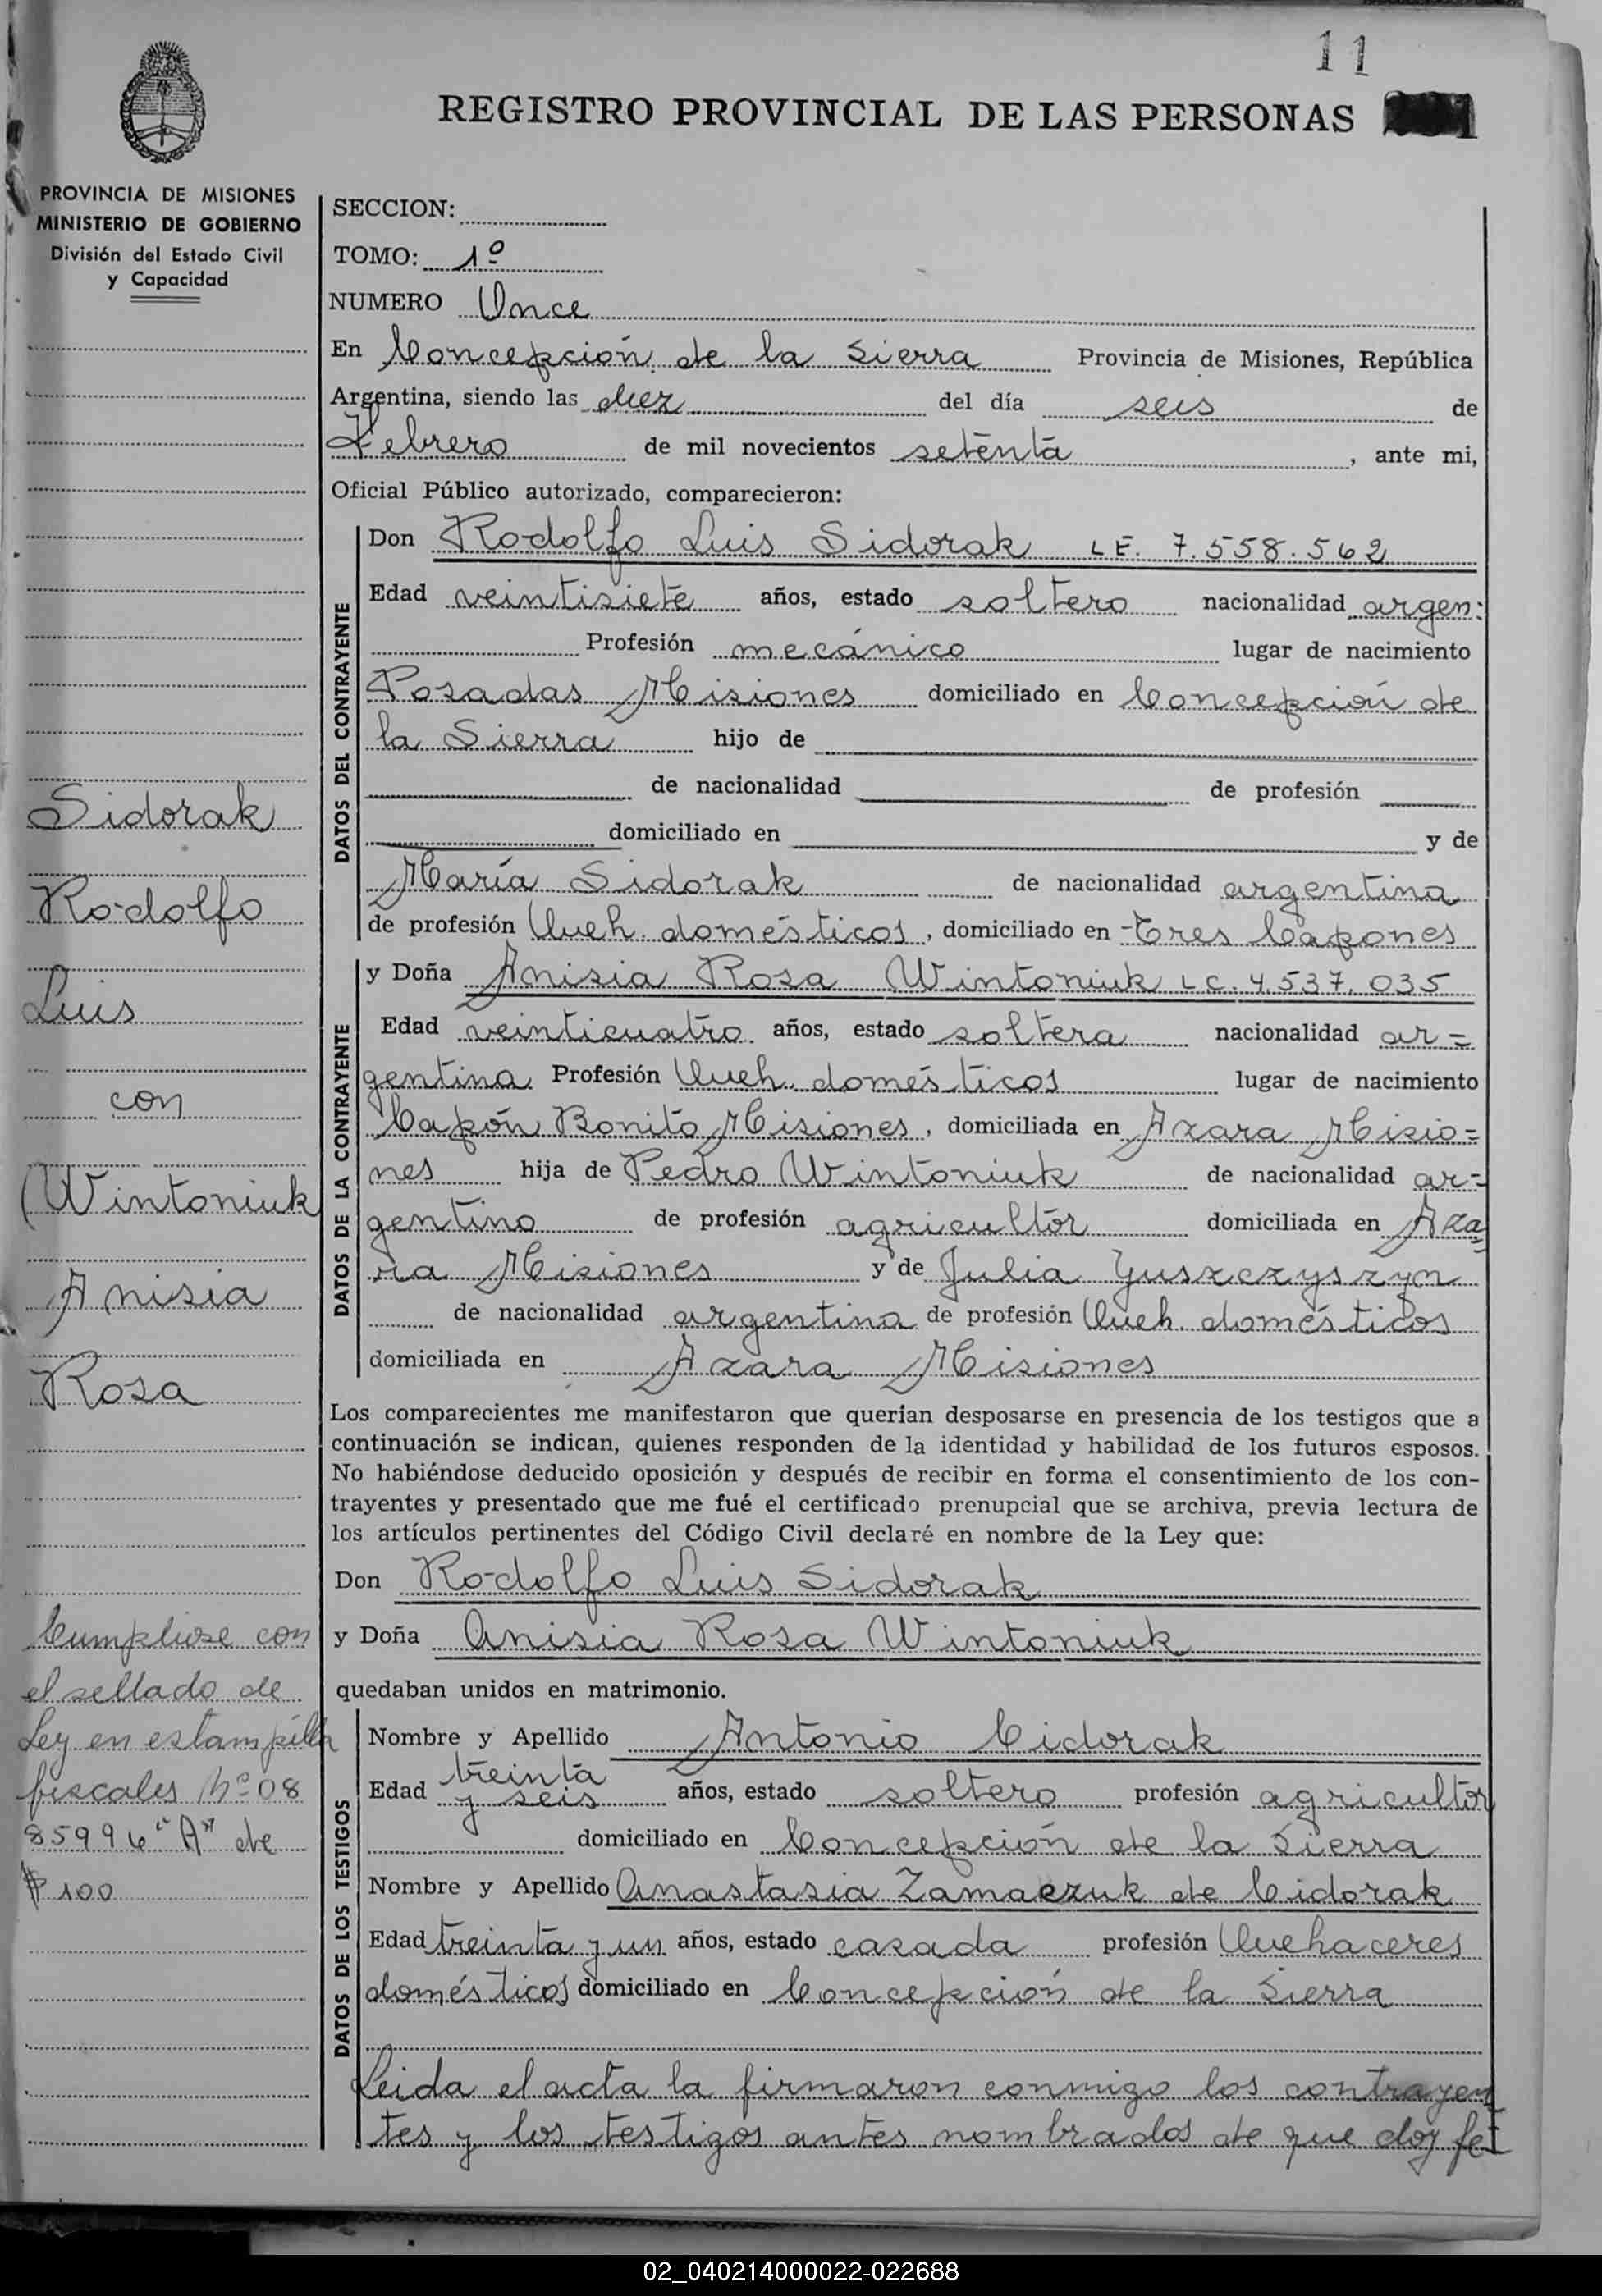 11
REGISTRO PROVINCIAL DE LAS PERSONAS
PROVINCIA DE MISIONES
MINISTERIO DE GOBIERNO
División del Estado Civil
y Capacidad
Sidorak
Rodolfo
Luis
con
Wintoniuk
Anisia
Rosa
Cumpliose con
el sellado de
Ley en estampilla
fiscales Nº 08
85996 "A" de
$ 100
SECCION:
TOMO: 1º
NUMERO Once
En Concepción de la Sierra Provincia de Misiones, República
Argentina, siendo las diez del día seis de
Febrero de mil novecientos setenta, ante mi,
Oficial Público autorizado, comparecieron:
DATOS DEL CONTRAYENTE
Don Rodolfo Luis Sidorak L E. 7.558.562
Edad veintisiete años, estado soltero nacionalidad argen:
Profesión mecánico lugar de nacimiento
Posadas Misiones domiciliado en Concepción de
la Sierra hijo de
de nacionalidad de profesión
domiciliado en y de
María Sidorak de nacionalidad argentina
de profesión Queh. domésticos, domiciliado en Tres Capones
DATOS DE LA CONTRAYENTE
y Doña Anisia Rosa Wintoniuk L C. 4.537.035
Edad veinticuatro años, estado soltera nacionalidad ar=
gentina Profesión Queh. domésticos lugar de nacimiento
Capón Bonito Misiones, domiciliada en Azara Misio=
nes hija de Pedro Wintoniuk de nacionalidad ar=
gentino de profesión agricultor domiciliada en Aza
ra Misiones y de Julia Yuszczyszyn
de nacionalidad argentina de profesión Queh. domésticos
domiciliada en Azara Misiones
Los comparecientes me manifestaron que querían desposarse en presencia de los testigos que a
continuación se indican, quienes responden de la identidad y habilidad de los futuros esposos.
No habiéndose deducido oposición y después de recibir en forma el consentimiento de los con-
trayentes y presentado que me fué el certificado prenupcial que se archiva, previa lectura de
los artículos pertinentes del Código Civil declaré en nombre de la Ley que:
Don Rodolfo Luis Sidorak
y Doña Anisia Rosa Wintoniuk
quedaban unidos en matrimonio.
DATOS DE LOS TESTIGOS
Nombre y Apellido Antonio Cidorak
Edad treinta y seis años, estado soltero profesión agricultor
domiciliado en Concepción de la Sierra
Nombre y Apellido Anastasia Zamaczuk de Cidorak
Edad treinta y un años, estado casada profesión Quehaceres
domésticos domiciliado en Concepción de la Sierra
Leida el acta la firmaron conmigo los contrayen
tes y los testigos antes nombrados de que doy fe
02_040214000022-022688